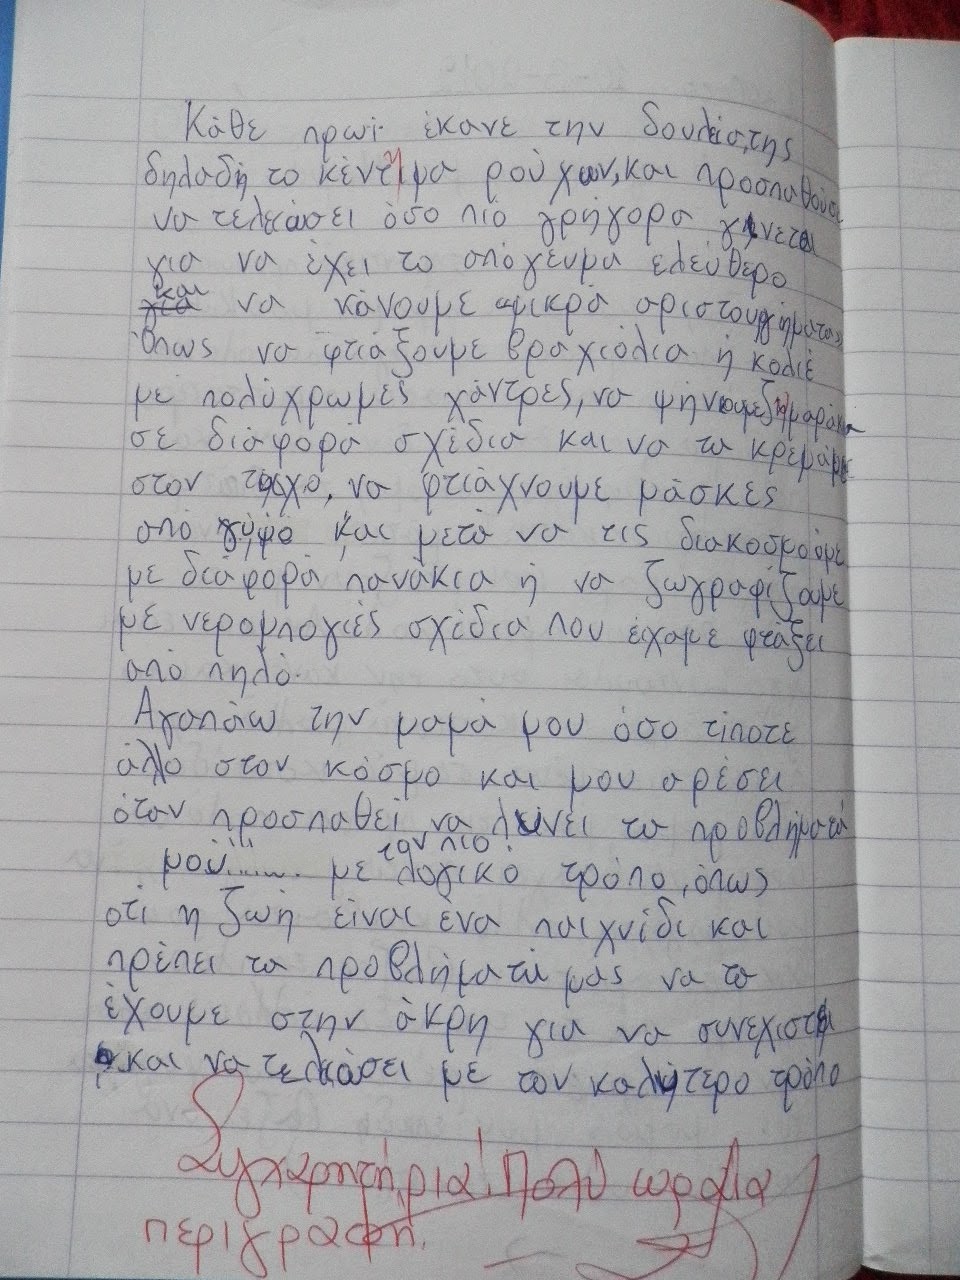 Κάθε πρωί έκανε την δουλεία,της
δηλαδή, το κέντημα ρούχων, και προσπαθούσε
να τελειώσει όσο πιο γρήγορα γίνεται
για να έχει το απόγευμα ελεύθερο
και να κάνουμε μικρά αριστουργήματα,
όπως να φτιάξουμε βραχιόλια ή κολιέ
με πολύχρωμες χάντρες, να ψήνουμε ζυμαράκια
σε διάφορα σχέδια και να τα κρεμάμε
στον τοίχο, να φτιάχνουμε μάσκες
από γύψο και μετά να τις διακοσμούμε
με διάφορα πανάκια ή να ζωγραφίζουμε
με νερομπογιές σχέδια που είχαμε φτιάξει
από πηλό.
Αγαπάω την μαμά μου όσο τίποτε
άλλο στον κόσμο και μου αρέσει
όταν προσπαθεί να λύνει τα προβλήματά
μου......... με τον πιο λογικό τρόπο, όπως
ότι η ζωή είναι ένα παιχνίδι και
πρέπει τα προβλήματά μας να τα
έχουμε στην άκρη για να συνεχιστεί
και να τελειώσει με τον καλύτερο τρόπο
Συγχαρητήρια! Πολύ ωραία
περιγραφή.